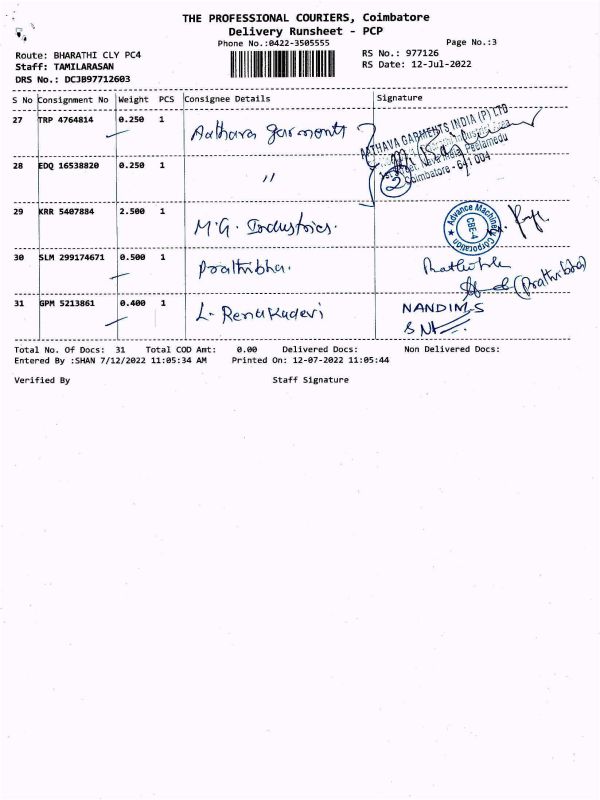 THE PROFESSIONAL COURIERS, Coimbatore
Delivery Runsheet - PCP
Phone No.:0422-3505555
Page No.:3
Route: BHARATHI CLY PC4
RS No.: 977126
Staff: TAMILARASAN
RS Date: 12-Jul-2022
DRS No.: DCJB97712603
S No Consignment No Weight PCS Consignee Details Signature
27 TRP 4764814 0.250 1 Aathava Garments
AATHAVA GARMENTS INDIA (P) LTD
28 EDQ 16538820 0.250 1 "
Nava India, Peelamedu
2 Coimbatore - 641 004
29 KRR 5407884 2.500 1 M.G. Industries.
Advance Machinery Corporation
CBE-4
30 SLM 299174671 0.500 1 Prathibha.
(Prathibha)
31 GPM 5213861 0.400 1 L. Renukadevi NANDIM.S
Total No. Of Docs: 31 Total COD Amt: 0.00 Delivered Docs: Non Delivered Docs:
Entered By :SHAN 7/12/2022 11:05:34 AM Printed On: 12-07-2022 11:05:44
Verified By Staff Signature